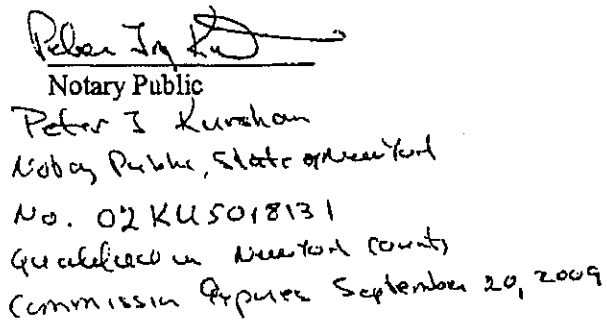 Notary Public
Peter I Kurshan
Notary Public, State of New York
No. 02KU5018131
Qualified in New York County
Commission Expires September 20, 2009